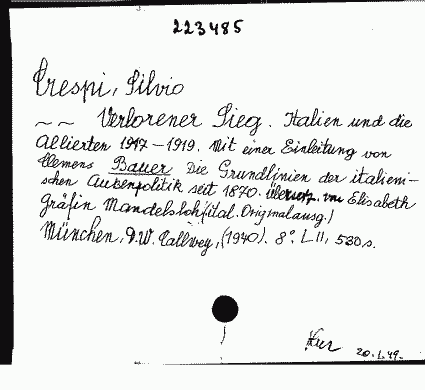 223485
Crespi, Silvio
~ ~ Verlorener Sieg. Italien und die
Alliierten 1917-1919. Mit einer Einleitung von
Klemens Bauer Die Grundlinien der italieni-
schen Außenpolitik seit 1870. übersetz. von Elisabeth
Gräfin Mandelsloh (ital. Originalausg.)
München, D.W. Callwey, (1940). 8°. LII, 530 s.
20.1.49.